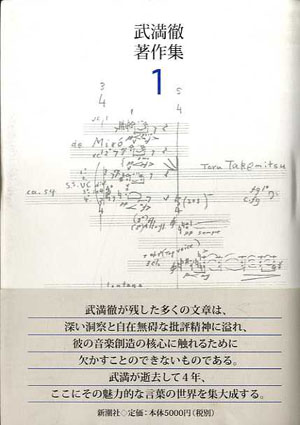 武満徹
著作集
1
3
4
5
4
de Miró
Toru Takemitsu
ca.54
武満徹が残した多くの文章は、
深い洞察と自在無碍な批評精神に溢れ、
彼の音楽創造の核心に触れるために
欠かすことのできないものである。
武満が逝去して4年、
ここにその魅力的な言葉の世界を集大成する。
新潮社◇定価：本体5000円(税別)